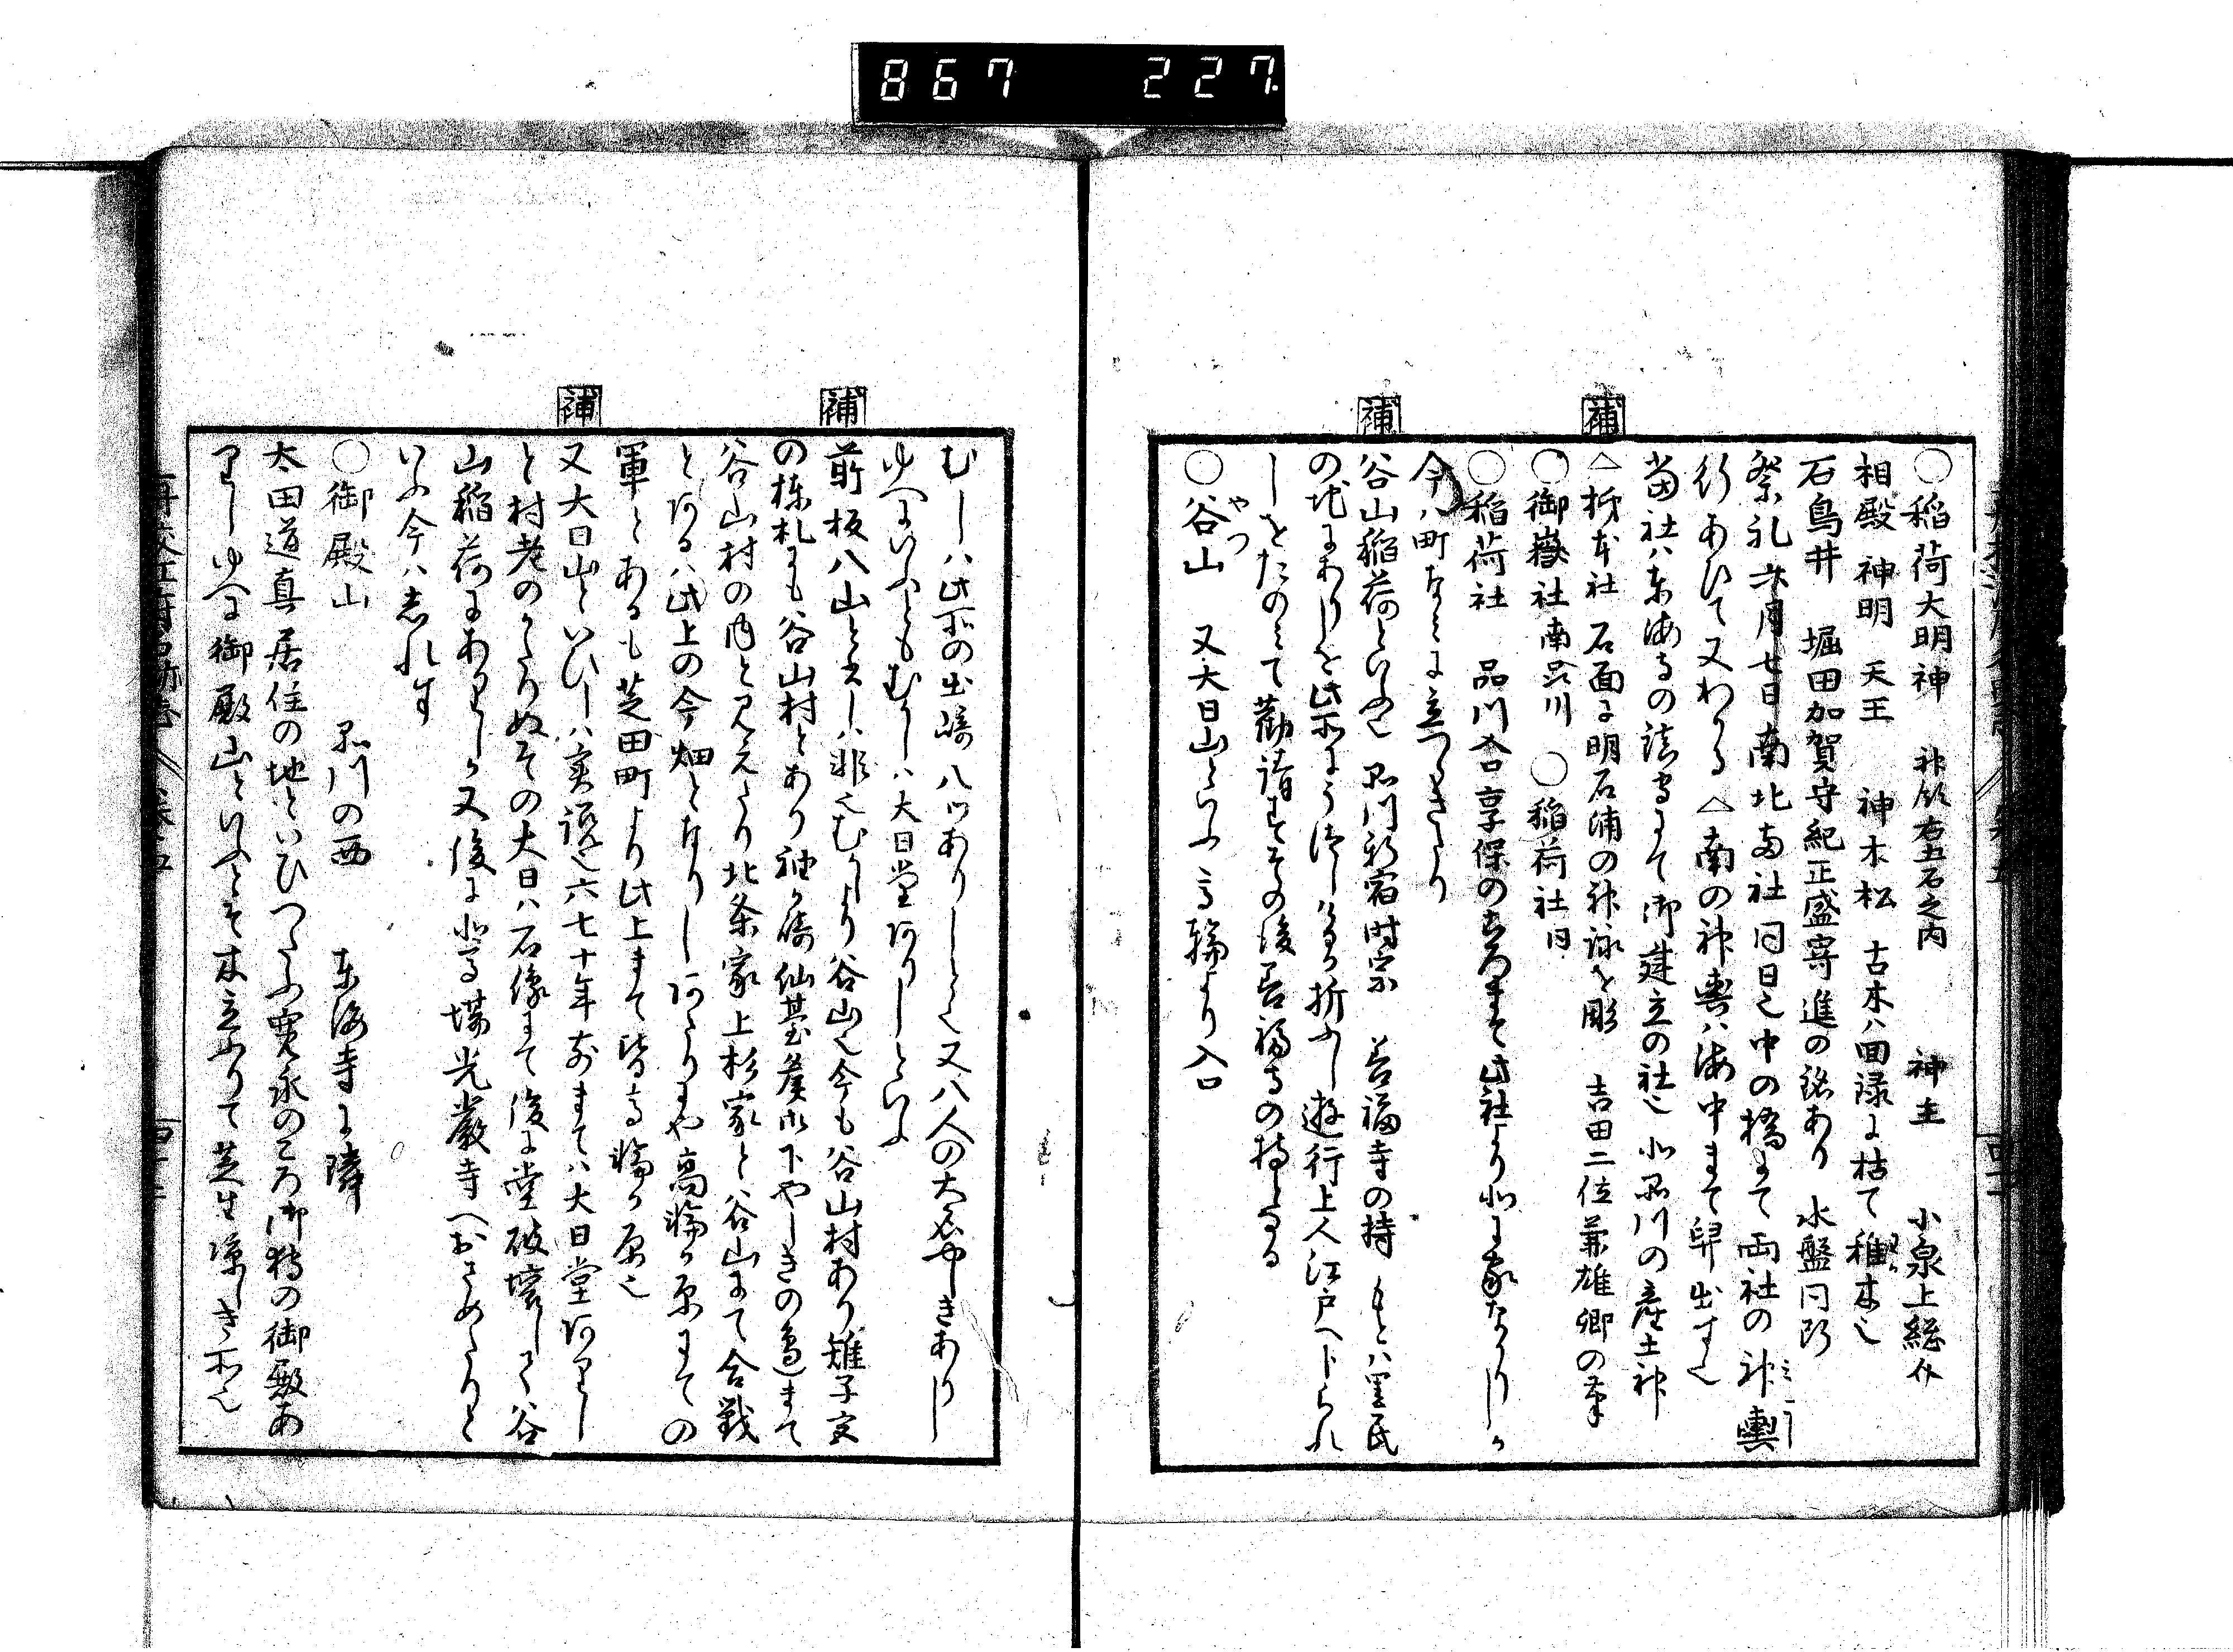 867 227
○稲荷大明神 神領右五石之内 神主 小泉上総介
相殿 神明 天王 神木松 古木ハ回禄に枯て稚木也
石鳥井 堀田加賀守紀正盛寄進の銘あり 水盤同所
祭礼六月七日南北両社同日也中の橋にて両社の神輿
行あひて又わかる △南の神輿ハ海中まて舁出す也
当社ハ東海寺の諸堂にて御建立の社也北品川の産土神
△柿本社 石面に明石浦の神詠を彫 吉田二位兼雄卿の筆
○御嶽社南品川 ○稲荷社同
○稲荷社 品川台享保のころまて此社より北に家なかりしか
今ハ町なみに立つゝきたり
補
谷山稲荷といふ也 品川新宿時宗 善福寺の持 もとハ里民
の地にありしを此所にうつしける折ふし遊行上人江戸へ下られ
しをたのみて勧請すその後善福寺の持となる
○谷山 又大日山といふ 高輪より入口
やつ
補
むかしハ此所の出崎八ツありしと也又八人の大名やしきありし
ゆへにいふともむかしハ大日堂ありしといふ
補
前板八山と云しハ非也むかしより谷山也今も谷山村あり雉子宮
の棟札にも谷山村とあり袖か崎仙台屋敷下やしきの邊まて
谷山村の内と見えたり北条家上杉家と谷山にて合戦
とあるハ此上の今畑となりしあたりにや高輪か原にての
軍とあるも芝田町より此上まて皆高輪か原也
補
又大日山といひしハ実説也六七十年前まてハ大日堂ありし
と村老のかたりぬその大日ハ石像にて後に堂破壊して谷
山稲荷にありしか又後に北馬場光厳寺へおさめたりと
いふ今ハしれす
○御殿山 品川の西 東海寺に隣
太田道真居住の地といひつたふ寛永のころ御狩の御殿あ
りしゆへに御殿山といふ也今に木立ふりて芝生涼しき所也